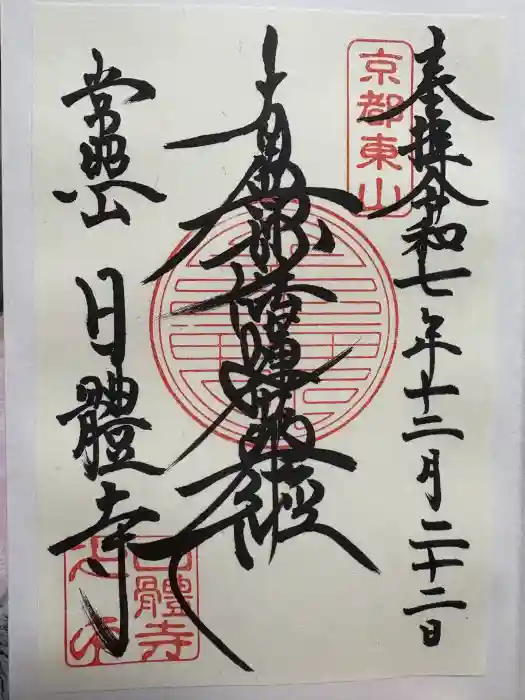 奉拝令和七年十二月二十二日
京都東山
南無妙法蓮華經
常照山 日體寺
日體寺